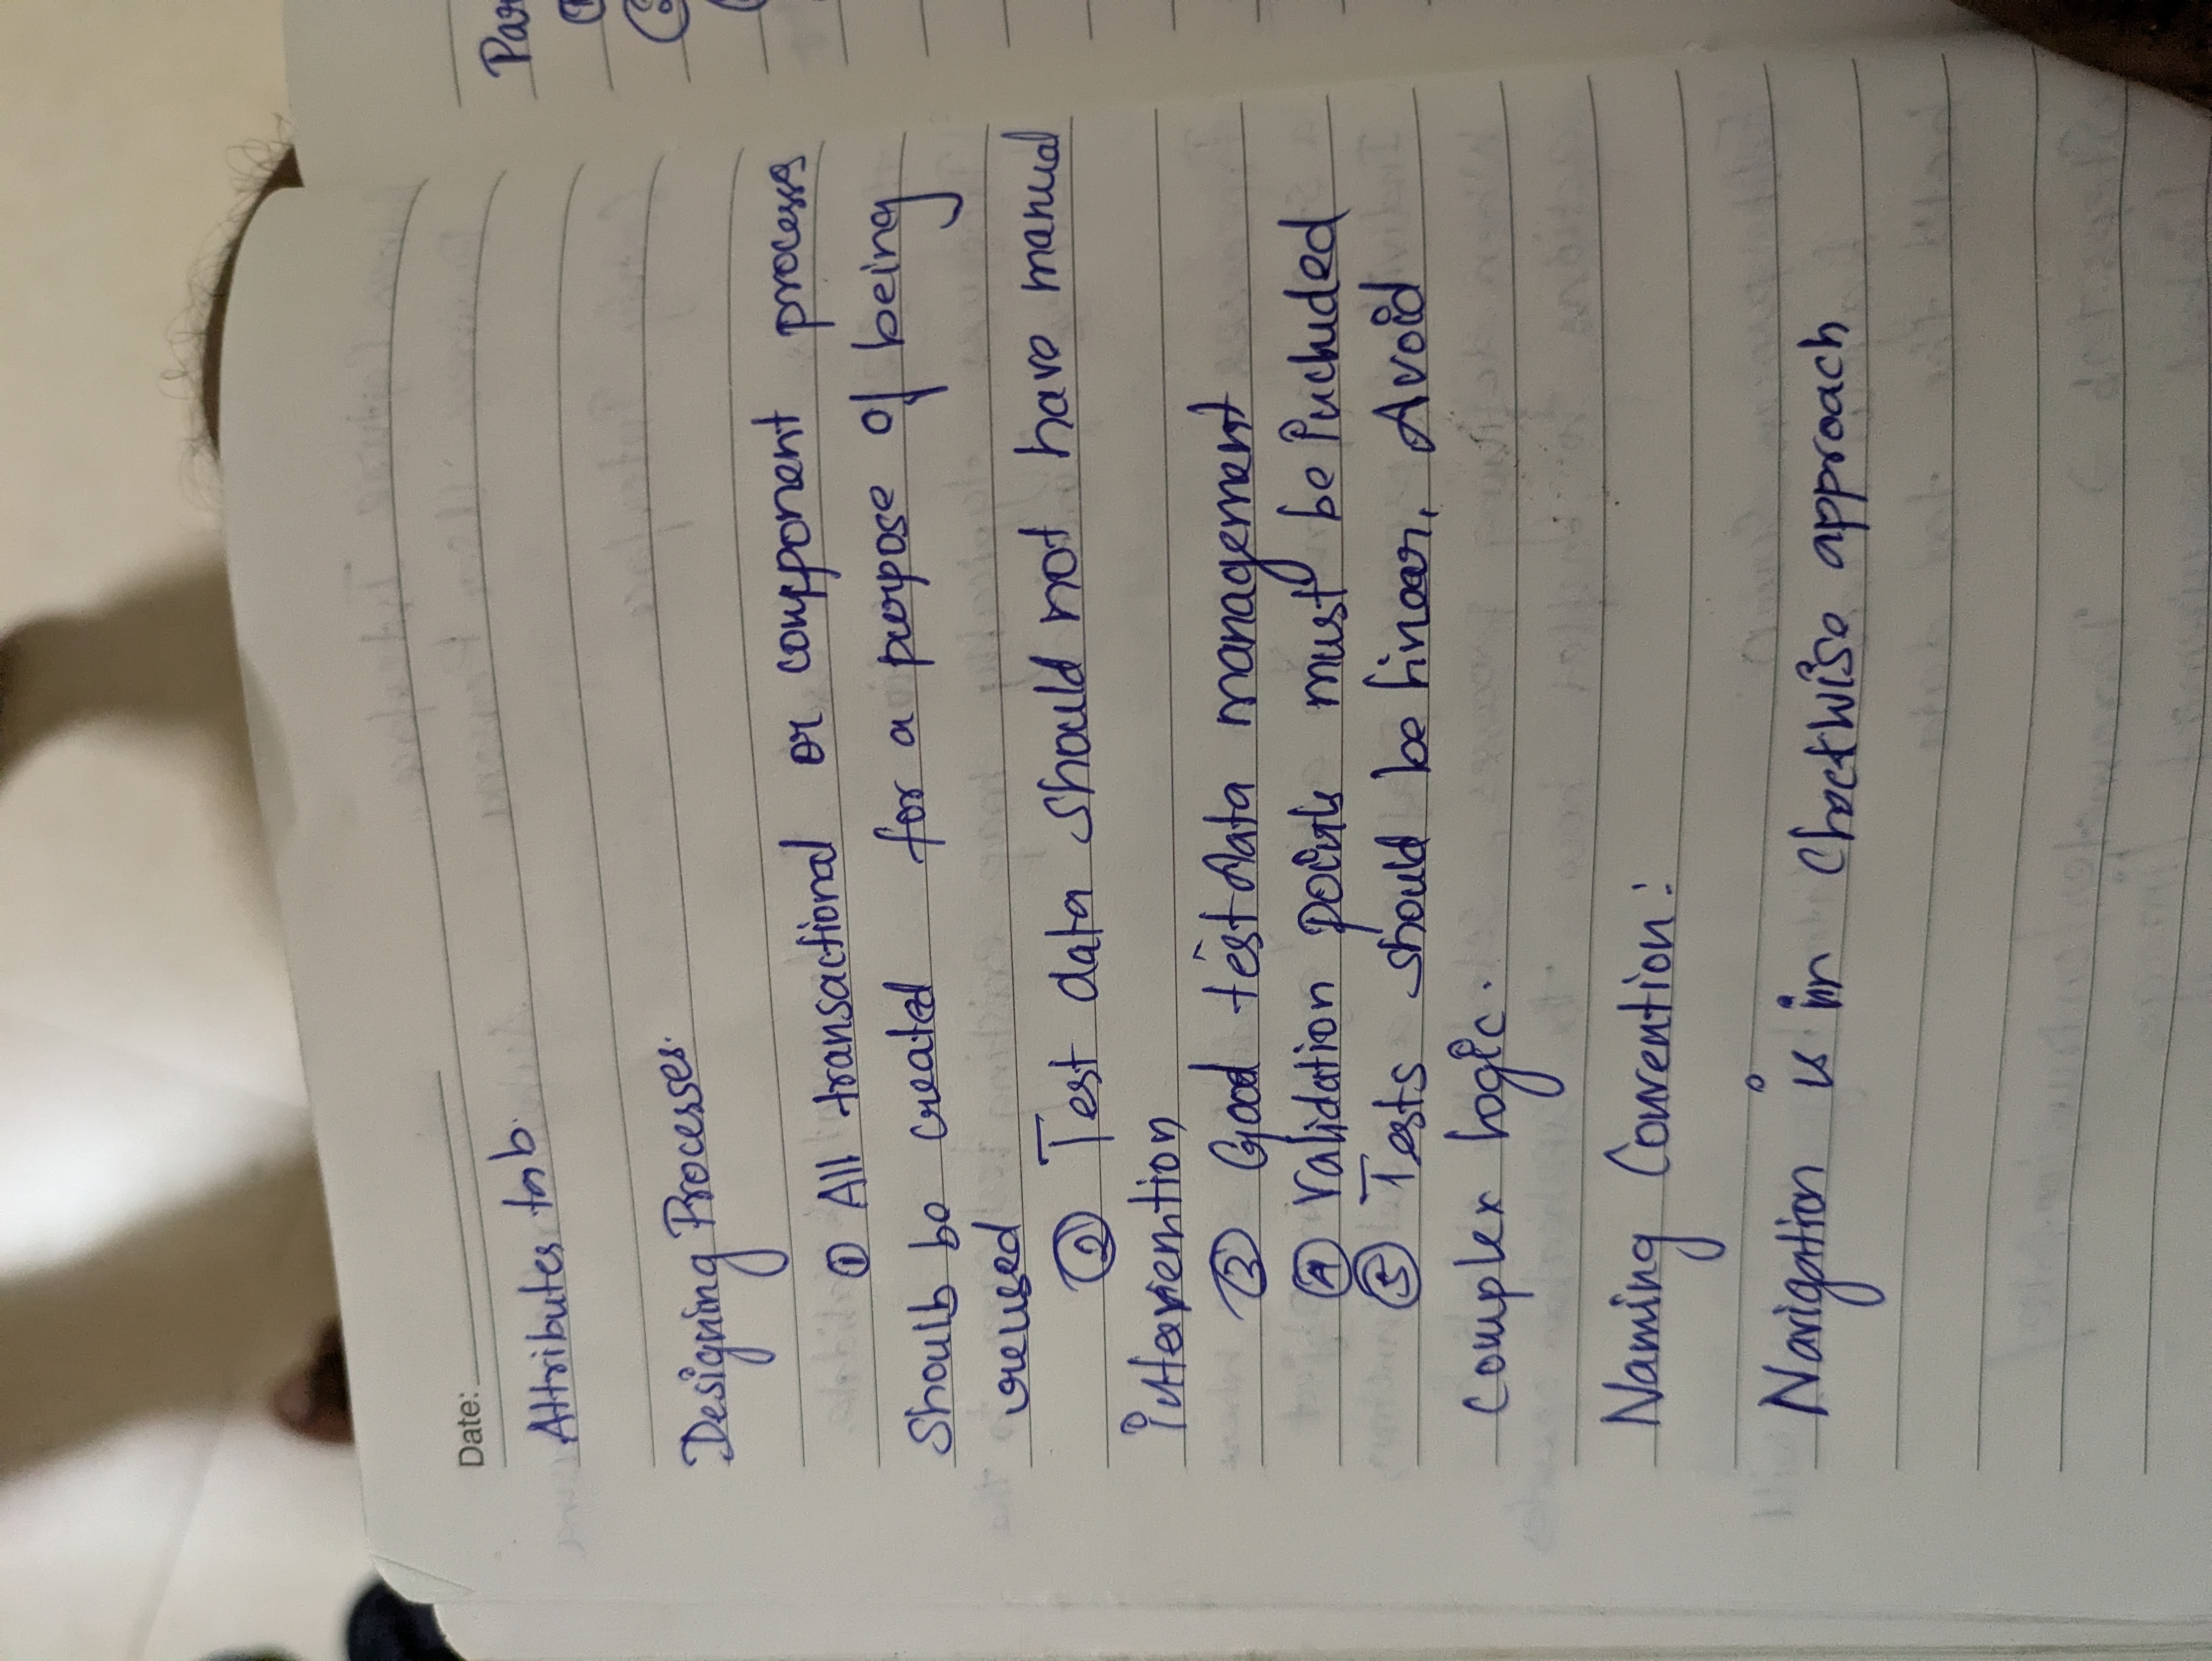 Date:
Attributes tab.
Designing Processes.
① All transactional or component process
Should be created for a purpose of being
reused
② Test data should not have manual
intervention
③ Good test data management
④ Validation points must be included
⑤ Tests should be linear. Avoid
Complex logic.
Naming Convention:
Navigation is in Clockwise approach
Par